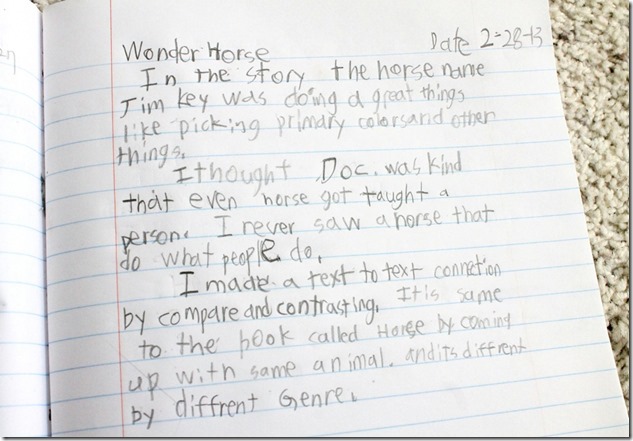 Date 2-28-13
Wonder Horse
In the story the horse name
Jim key was doing a great things
like picking primary colorsand other
things.
I thought Doc. was kind
that even horse got taught a
person. I never saw a horse that
do what people do.
I made a text to text connetion
by compare and contrasting. It is same
to the book called Horse by coming
up with same animal. and its diffrent
by diffrent Genre.